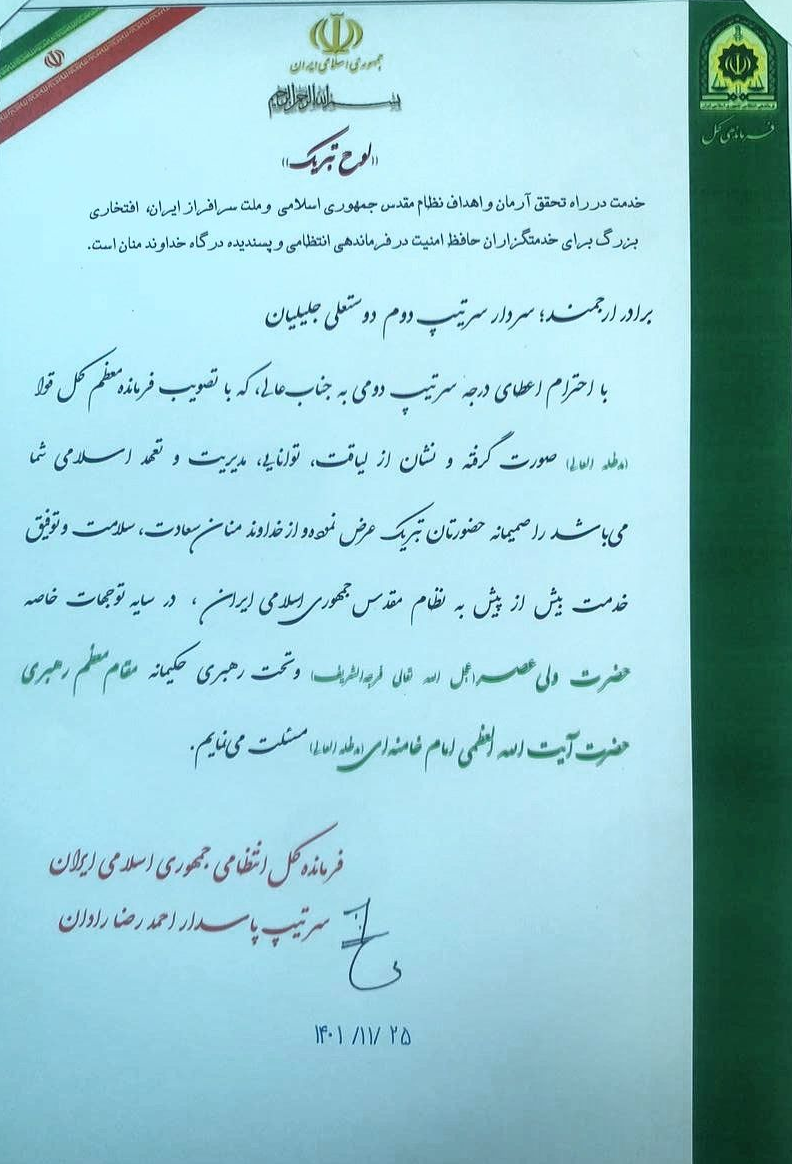 جمهوری اسلامی ایران
بسم الله الرحمن الرحیم
فرماندهی کل
((لوح تبریک))
خدمت در راه تحقق آرمان و اهداف نظام مقدس جمهوری اسلامی و ملت سرافراز ایران، افتخاری
بزرگ برای خدمتگزاران حافظ امنیت در فرماندهی انتظامی و پسندیده درگاه خداوند منان است.
برادر ارجمند؛ سردار سرتیپ دوم دوستعلی جلیلیان
با احترام اعطای درجه سرتیپ دومی به جناب عالی، که با تصویب فرمانده معظم کل قوا
(مدظله العالی) صورت گرفته و نشان از لیاقت، توانایی، مدیریت و تعهد اسلامی شما
می‌باشد را صمیمانه حضورتان تبریک عرض نموده و از خداوند منان سعادت، سلامت و توفیق
خدمت بیش از پیش به نظام مقدس جمهوری اسلامی ایران ، در سایه توجهات خاصه
حضرت ولی عصر(عجل الله تعالی فرجه الشریف) و تحت رهبری حکیمانه مقام معظم رهبری
حضرت آیت الله العظمی امام خامنه‌ای (مدظله العالی) مسئلت می‌نمایم.
فرمانده کل انتظامی جمهوری اسلامی ایران
سرتیپ پاسدار احمد رضا رادان
۱۴۰۱ /۱۱/ ۲۵